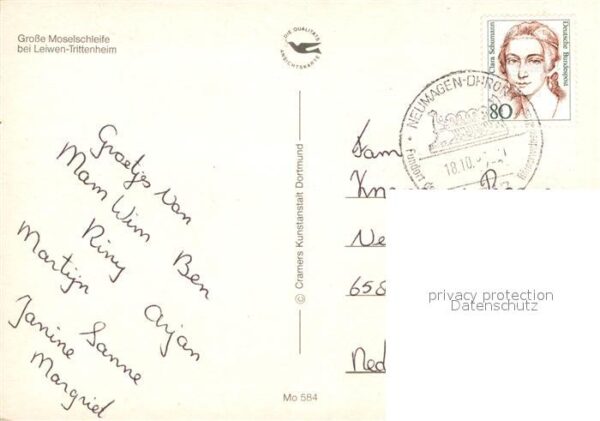 Große Moselschleife
bei Leiwen-Trittenheim
DIE QUALITÄTS
ANSICHTSKARTE
Clara Schumann
Deutsche Bundespost
80
NEUMAGEN-DHRON
Fundort
18.10.
Groetjes van
Mam Wim Ben
Riny
Martijn Arjan
Janine Sanne
Margriet
© Cramers Kunstanstalt Dortmund
Mo 584
Fam
Ne
658
Ned
privacy protection
Datenschutz